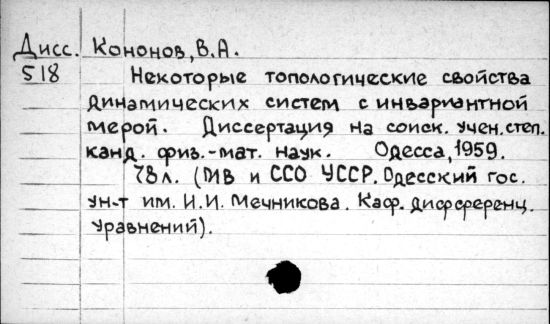 Дисс. Кононов, В.А.
518 Некоторые топологические свойства
динамических систем с инвариантной
мерой. Диссертация на соиск. учен. степ.
канд. физ.-мат. наук. Одесса, 1959.
78л. (МВ и ССО УССР. Одесский гос.
ун-т им. И.И. Мечникова. Каф. дифференц.
уравнений).